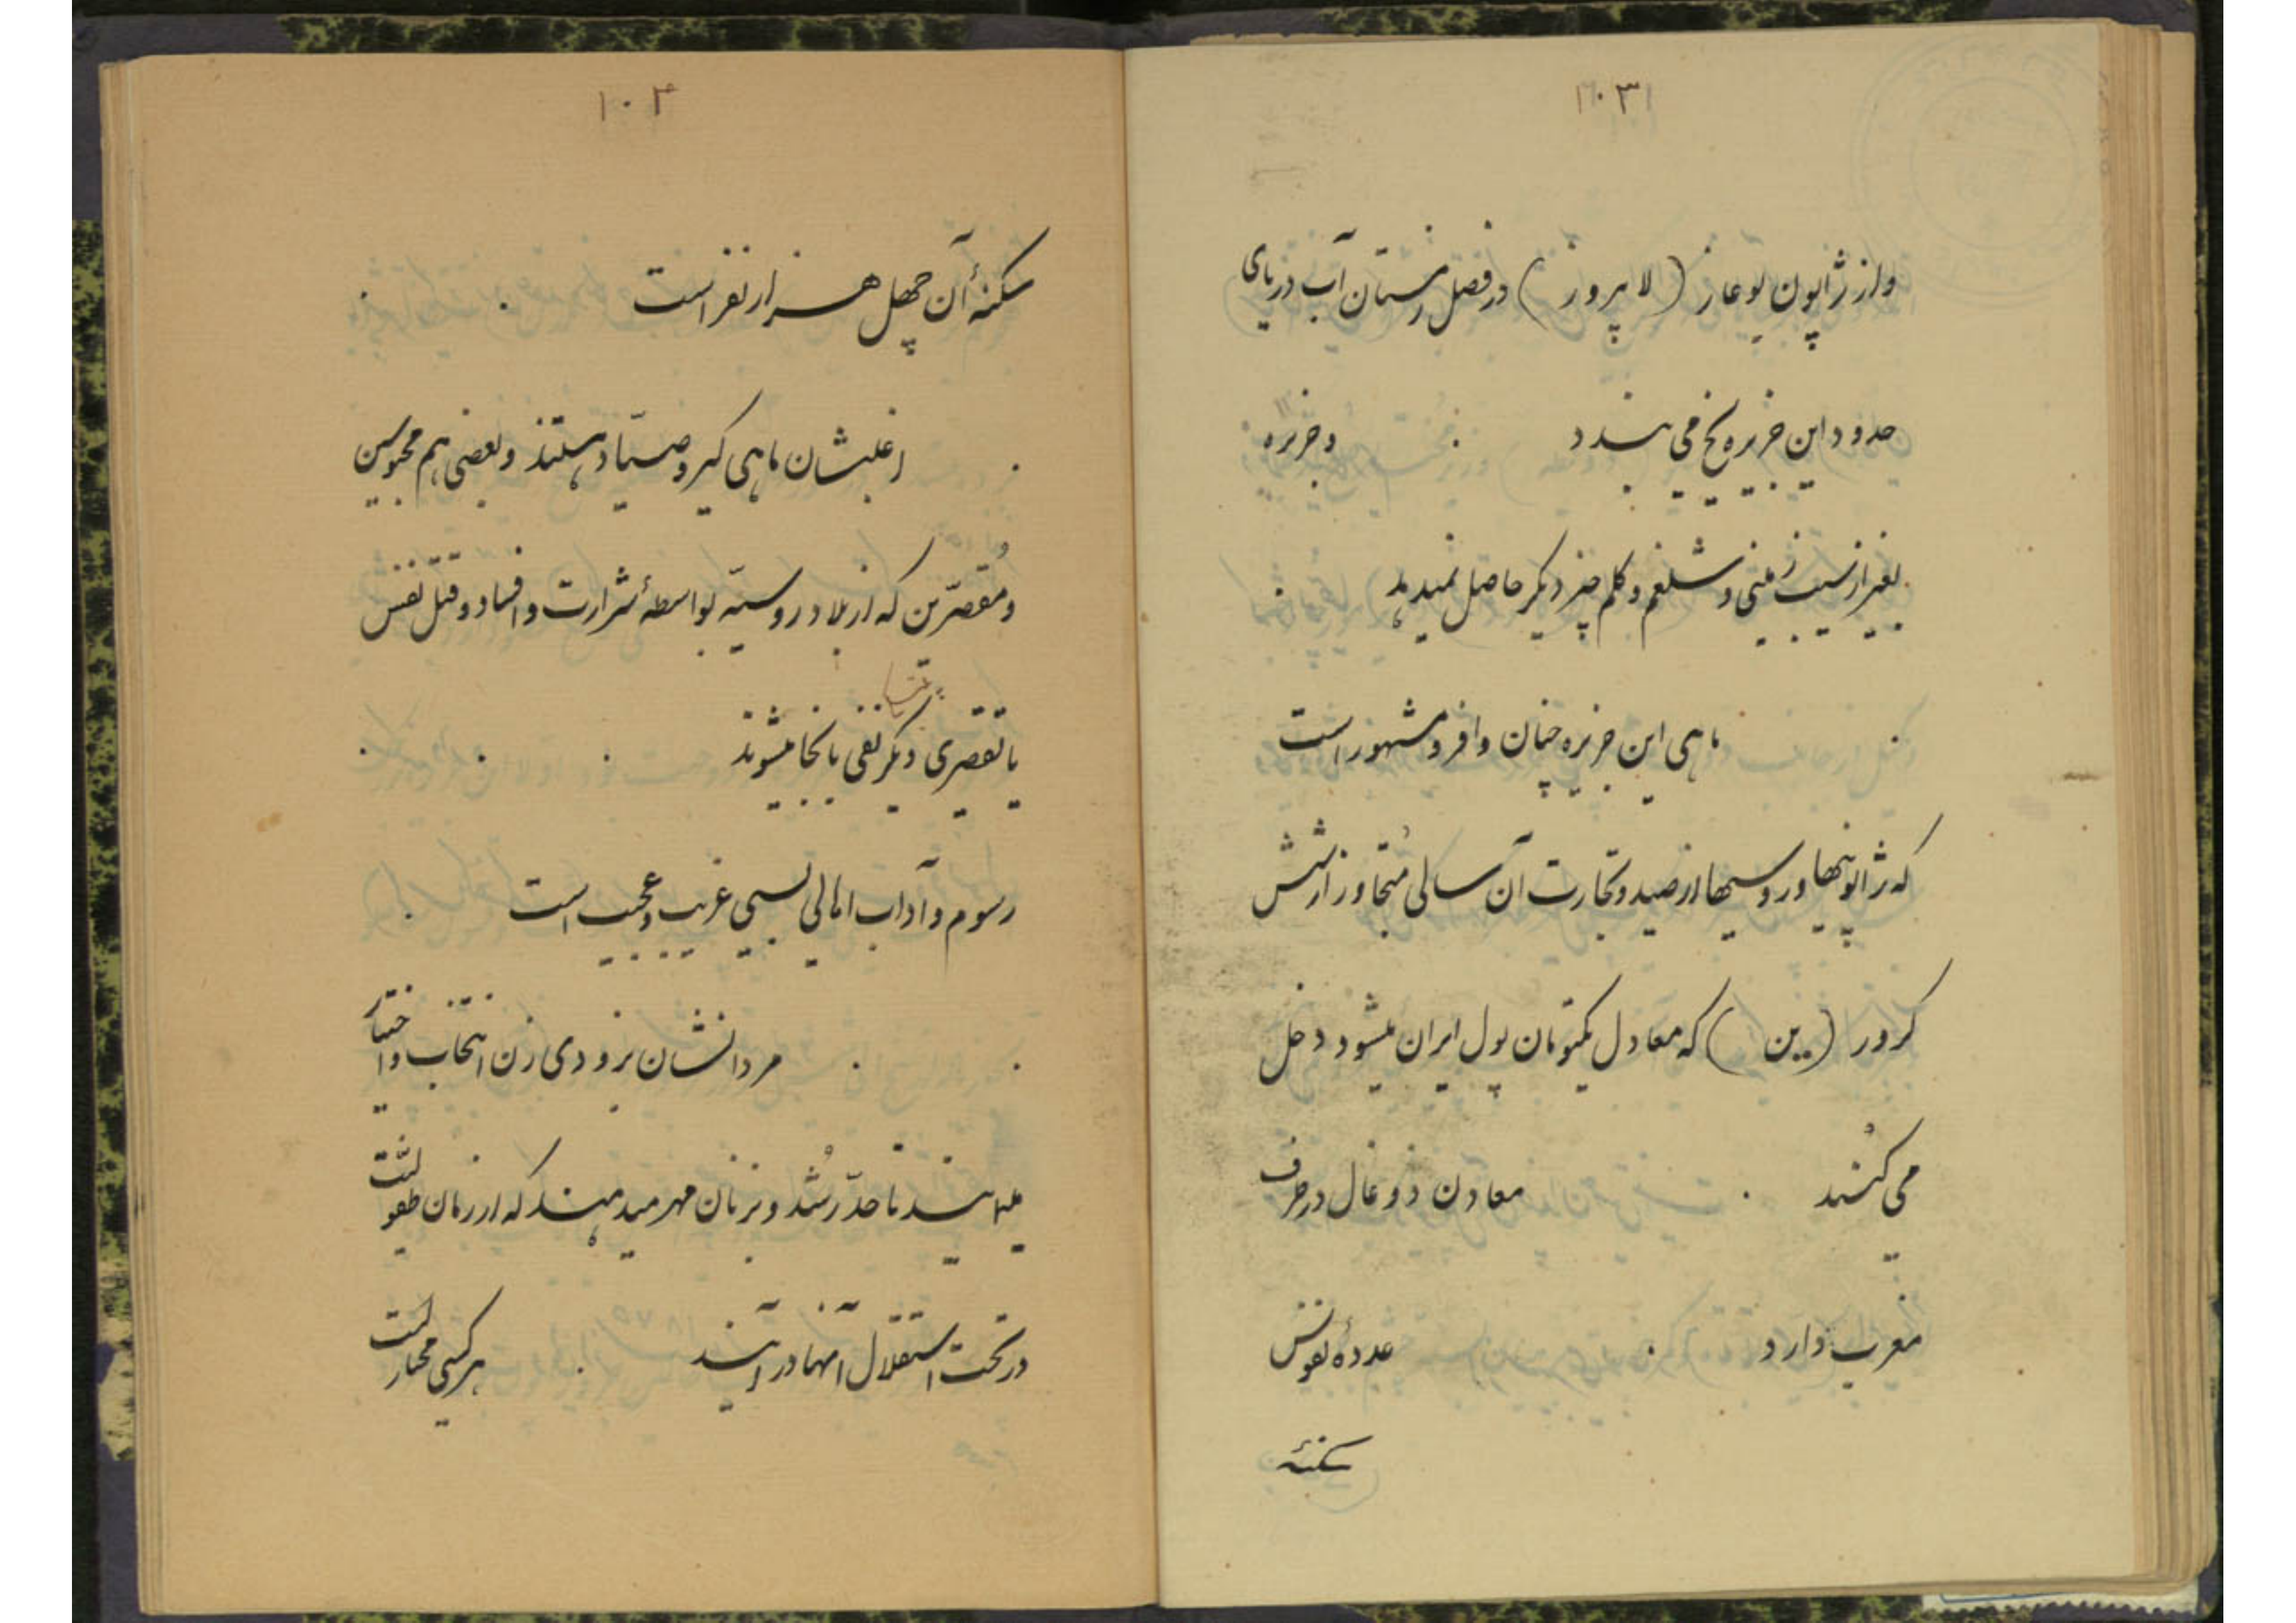 ۱۰۳
و از ژاپون بوغاز (لا پروز) در فصل زمستان آب دریای
حدود این جزیره یخ می بندد . و جزیره
بغیر از سیب زمینی و شلغم و کلم چیز دیگر حاصل نمیدهد .
. ماهی این جزیره چنان وافر و مشهور است
که ژاپونیها و روسیها از صید و تجارت آن سالی مُتجاوز از شش
کرور (ین) که معادل یکتومان پول ایران میشود دخل
می کُنند . معادن ذوغال در طرف
مغرب دارد . عددهٔ نفوس
سکنهٔ
۱۰۴
سکنهٔ آن چهل هزار نفر است .
. اغلبشان ماهی گیر و صیّاد هستند و بعضی هم محبوسین
و مُقصّرین که از بلاد روسیّه بواسطهٔ شرارت و افساد و قتل نفس
یا تقصیری دیگر نفی بانجا میشوند . . .
رسوم و آداب اهالی بسیی غریب و عجیب است .
. . مردانشان بزودی زن انتخاب و اختیار
مینمایند تا حدّ رُشد و بزنان مهر میدهند که از زمان طفولیّت
در تحت استقلال آنها در آیند . هر کسی مختار است